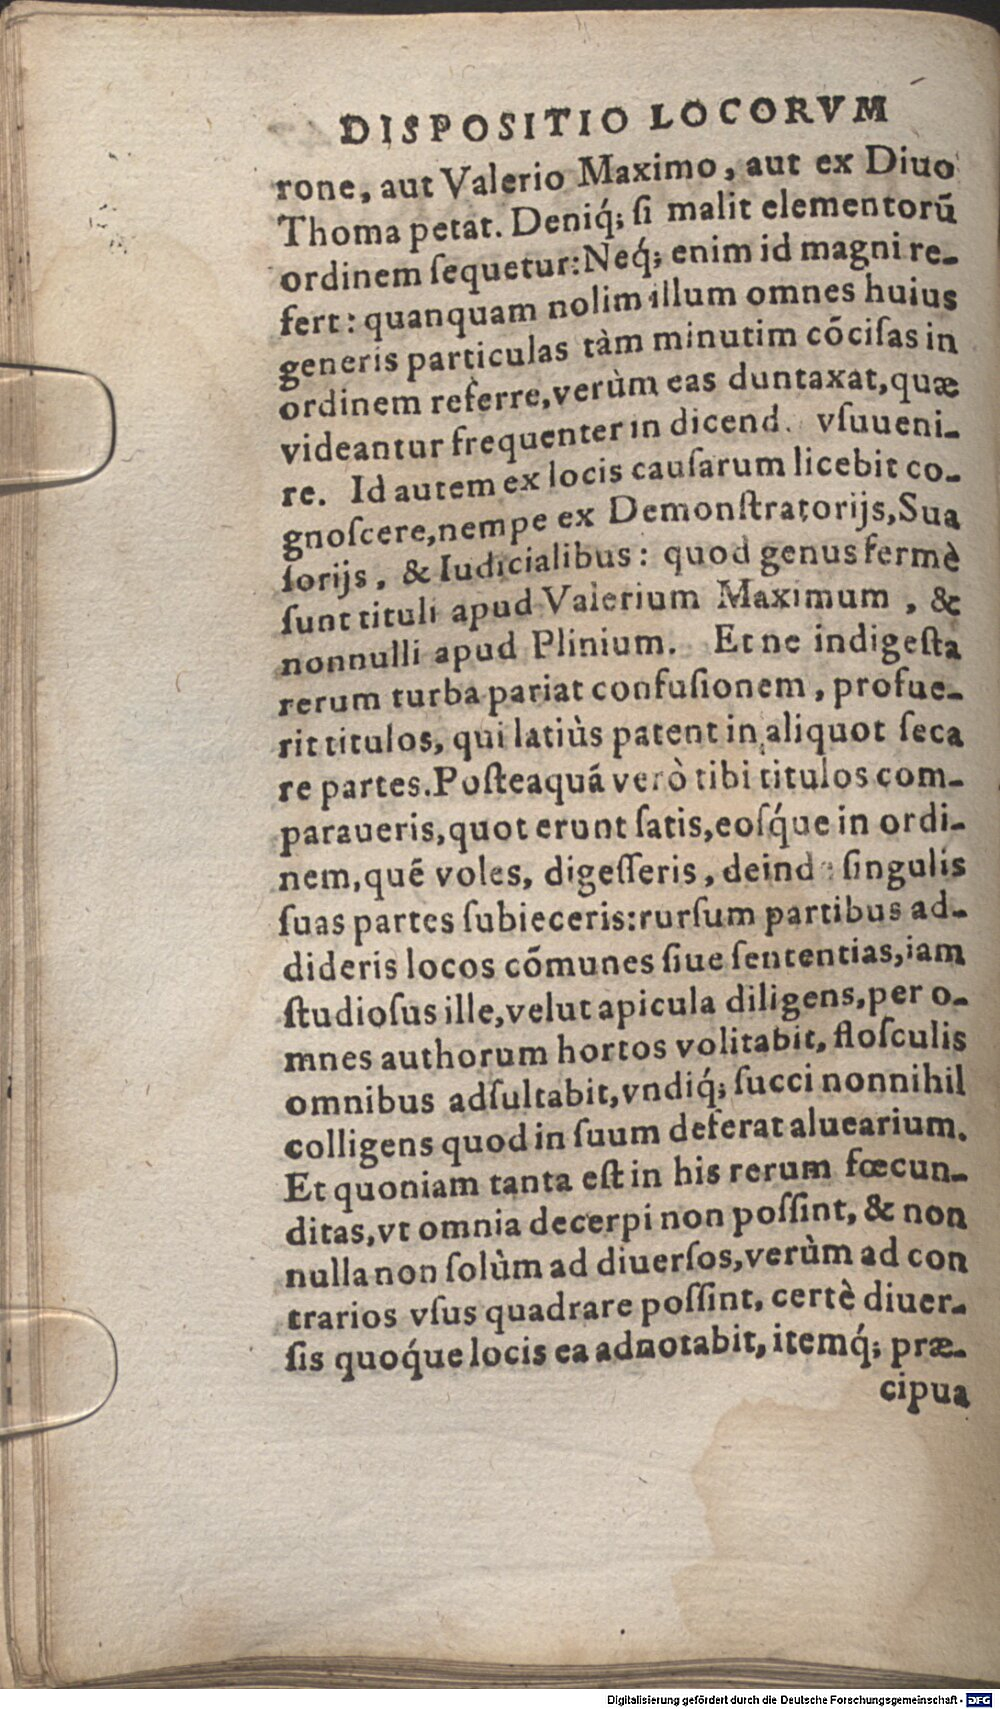 DISPOSITIO LOCORVM
rone, aut Valerio Maximo, aut ex Diuo
Thoma petat. Deniq́; ſi malit elementorū
ordinem ſequetur: Neq́; enim id magni re-
fert: quanquam nolim illum omnes huius
generis particulas tàm minutim cōciſas in
ordinem referre, verùm eas duntaxat, quæ
videantur frequenter in dicend. vſuueni-
re. Id autem ex locis cauſarum licebit co-
gnoſcere, nempe ex Demonſtratorijs, Sua
ſorijs, & Iudicialibus: quod genus fermè
ſunt tituli apud Valerium Maximum, &
nonnulli apud Plinium. Et ne indigeſta
rerum turba pariat confuſionem, profue-
rit titulos, qui latiùs patent in aliquot ſeca
re partes. Poſteaquā verò tibi titulos com-
paraueris, quot erunt ſatis, eoſq́ue in ordi-
nem, quē voles, digeſſeris, deind ſingulis
ſuas partes ſubieceris: rurſum partibus ad-
dideris locos cōmunes ſiue ſententias, iam
ſtudioſus ille, velut apicula diligens, per o-
mnes authorum hortos volitabit, floſculis
omnibus adſultabit, vndiq́; ſucci nonnihil
colligens quod in ſuum deferat aluearium.
Et quoniam tanta eſt in his rerum fœcun-
ditas, vt omnia decerpi non poſſint, & non
nulla non ſolùm ad diuerſos, verùm ad con
trarios vſus quadrare poſſint, certè diuer-
ſis quoq́ue locis ea adnotabit, itemq́; præ-
cipua
Digitalisierung gefördert durch die Deutsche Forschungsgemeinschaft - DFG